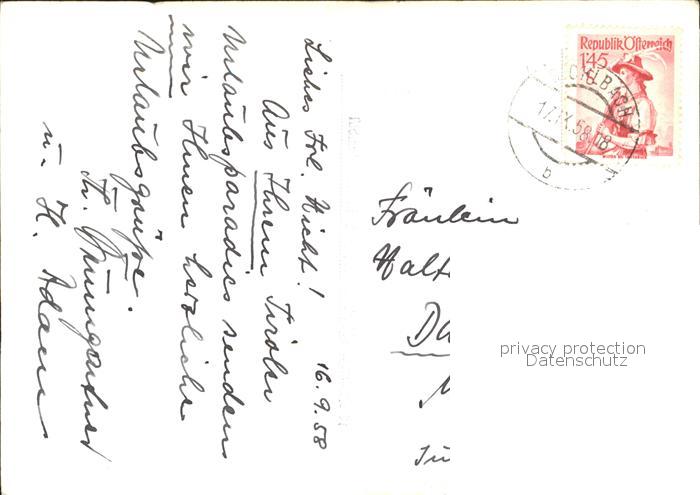 16.9.58
Liebes Frl. Wicht!
Aus Ihrem Tiroler
Urlaubsparadies senden
wir Ihnen herzliche
Urlaubsgrüße.
Th. Baumgartner
u. H. Adam
Republik Österreich
1'45
17.IX.58 18
b
Fräulein
Walt
Da
privacy protection
Datenschutz